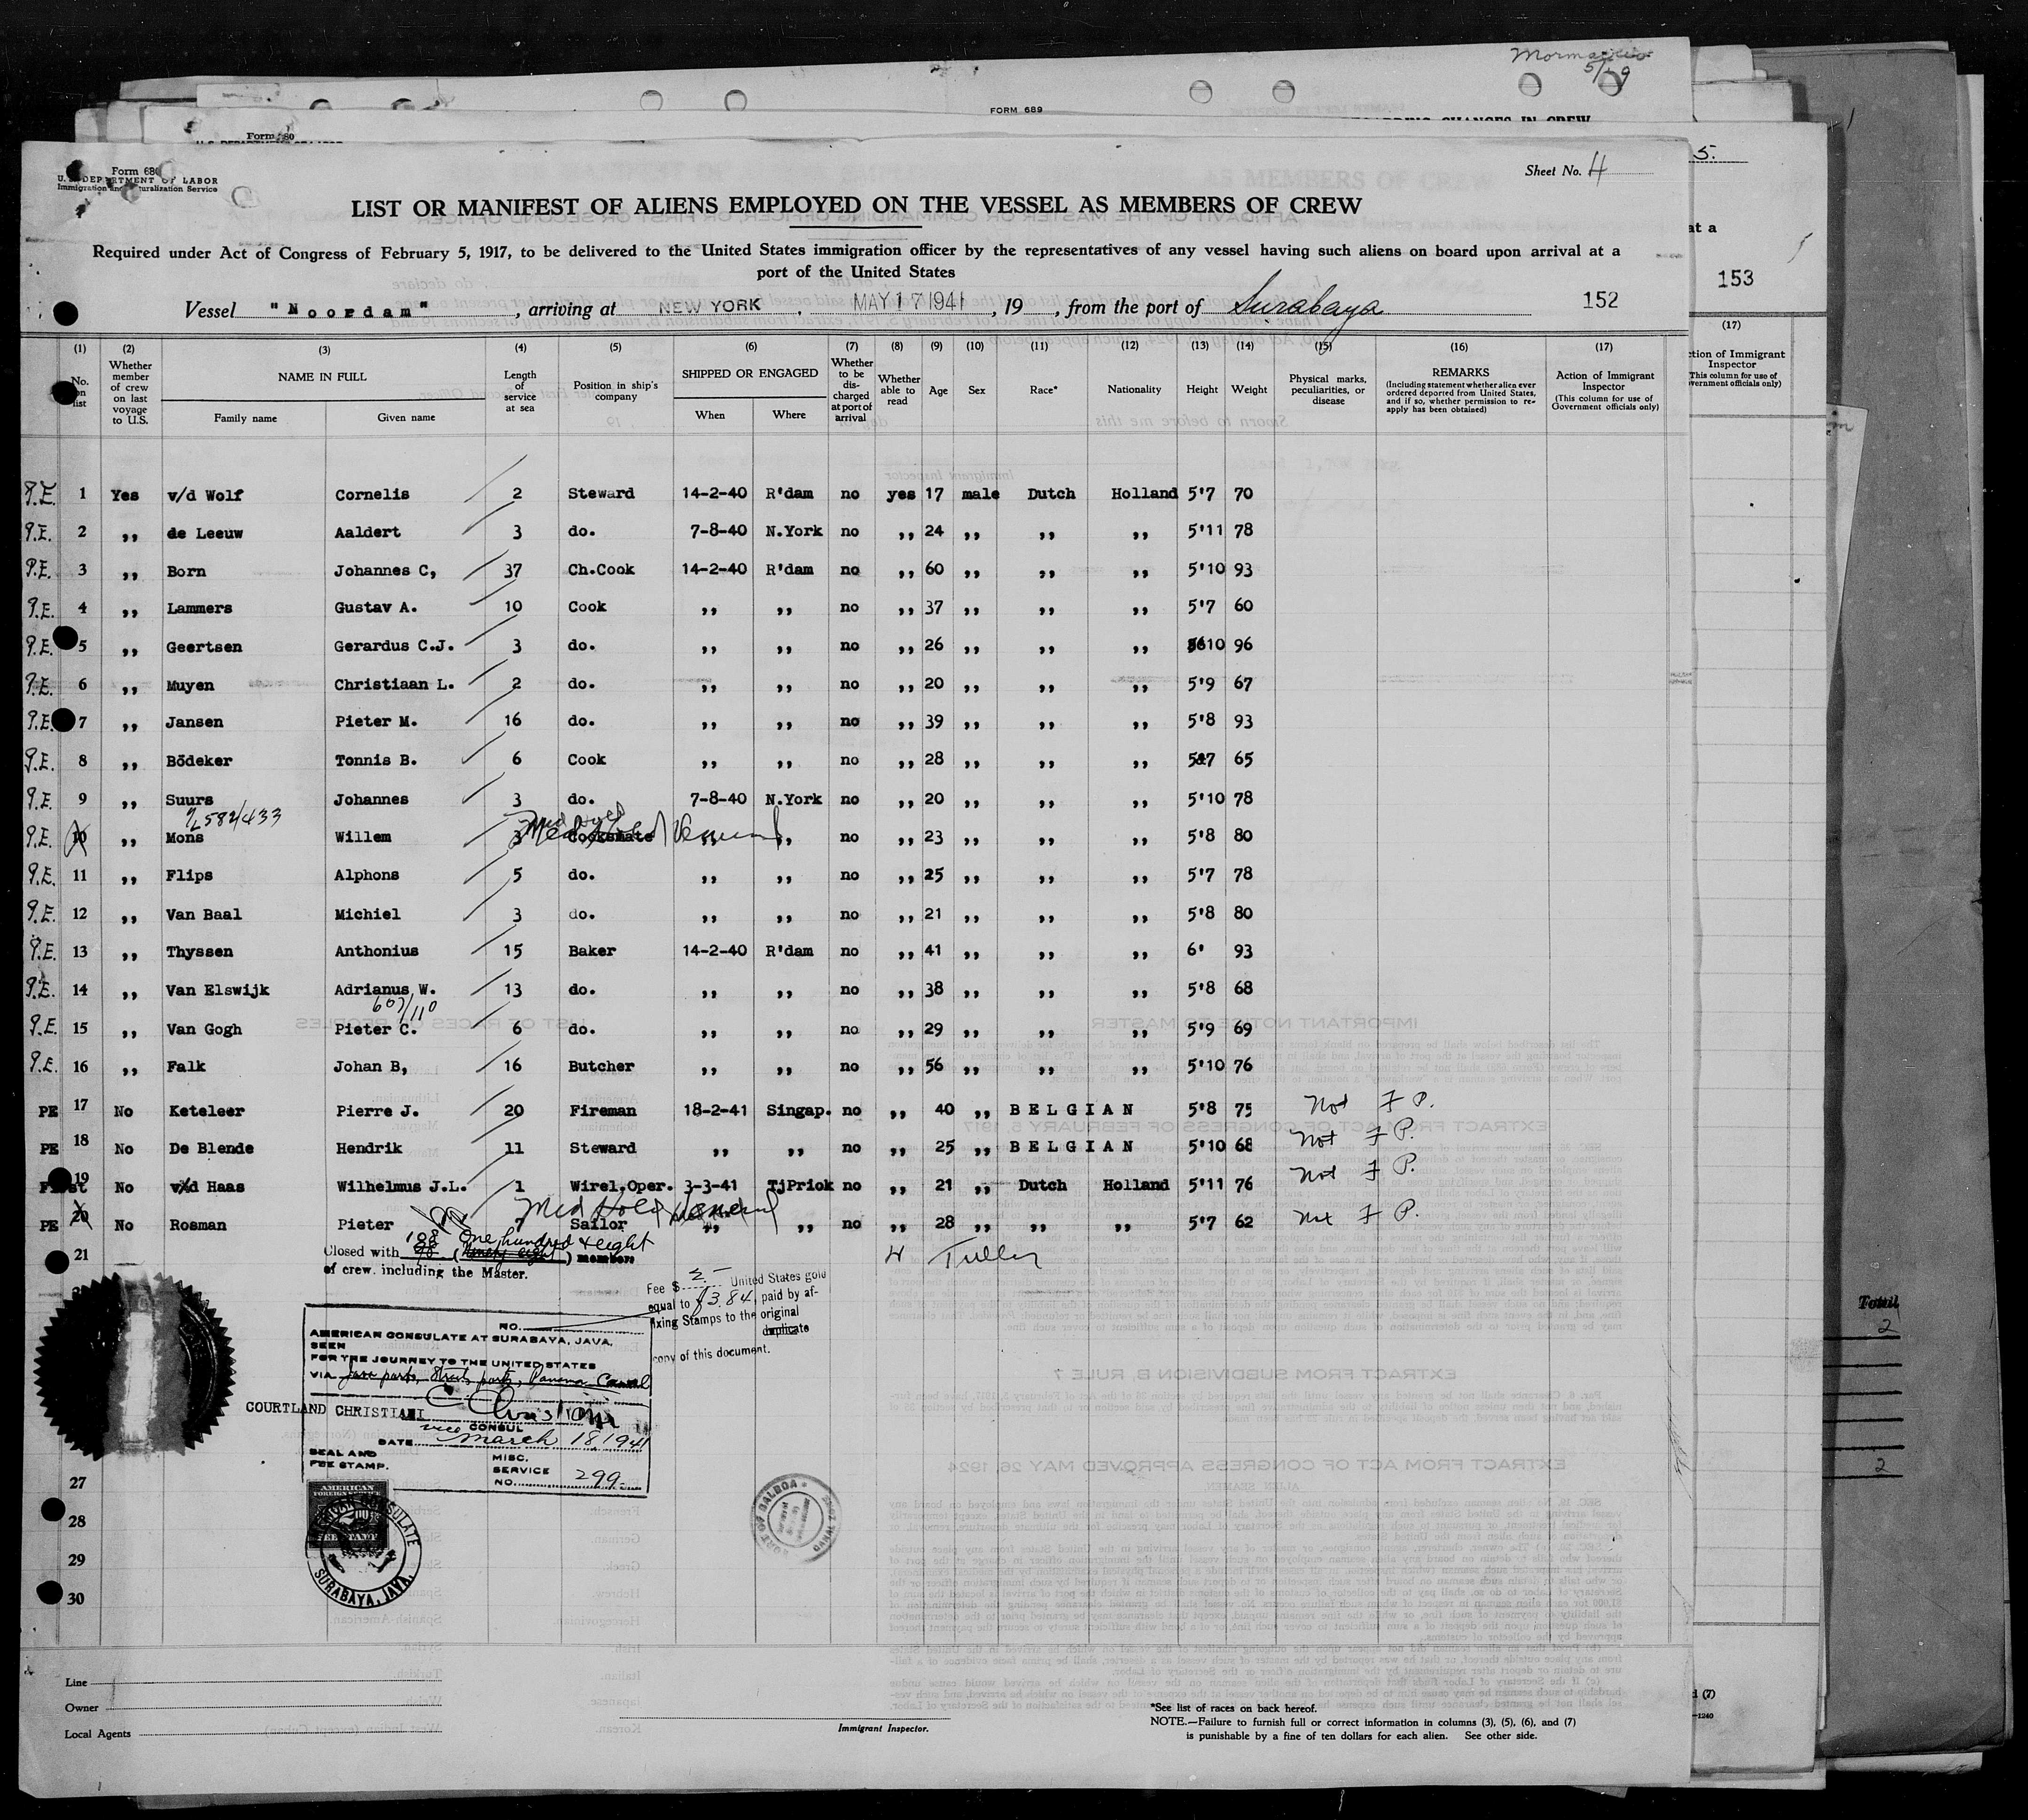 Mormacrio
5/19
FORM 689
Form 680
5.
Form 680
U. S. DEPARTMENT OF LABOR
Immigration and Naturalization Service
Sheet No. 4
LIST OR MANIFEST OF ALIENS EMPLOYED ON THE VESSEL AS MEMBERS OF CREW
Required under Act of Congress of February 5, 1917, to be delivered to the United States immigration officer by the representatives of any vessel having such aliens on board upon arrival at a
port of the United States
at a
153
Vessel "Noordam", arriving at NEW YORK, MAY 17 1941, 19, from the port of Surabaya 152
(1) (2) (3) (4) (5) (6) (7) (8) (9) (10) (11) (12) (13) (14) (15) (16) (17) (17)
No. on list
Whether member of crew on last voyage to U.S.
NAME IN FULL
Family name Given name
Length of service at sea
Position in ship's company
SHIPPED OR ENGAGED
When Where
Whether to be discharged at port of arrival
Whether able to read
Age
Sex
Race*
Nationality
Height
Weight
Physical marks, peculiarities, or disease
REMARKS
(Including statement whether alien ever ordered deported from United States, and if so, whether permission to reapply has been obtained)
Action of Immigrant Inspector
(This column for use of Government officials only)
P.E. 1 Yes v/d Wolf Cornelis 2 Steward 14-2-40 R'dam no yes 17 male Dutch Holland 5'7 70
P.E. 2 ,, de Leeuw Aaldert 3 do. 7-8-40 N.York no ,, 24 ,, ,, ,, 5'11 78
P.E. 3 ,, Born Johannes C, 37 Ch.Cook 14-2-40 R'dam no ,, 60 ,, ,, ,, 5'10 93
P.E. 4 ,, Lammers Gustav A. 10 Cook ,, ,, no ,, 37 ,, ,, ,, 5'7 60
P.E. 5 ,, Geertsen Gerardus C.J. 3 do. ,, ,, no ,, 26 ,, ,, ,, 10 96
P.E. 6 ,, Muyen Christiaan L. 2 do. ,, ,, no ,, 20 ,, ,, ,, 5'9 67
P.E. 7 ,, Jansen Pieter M. 16 do. ,, ,, no ,, 39 ,, ,, ,, 5'8 93
P.E. 8 ,, Bödeker Tonnis B. 6 Cook ,, ,, no ,, 28 ,, ,, ,, 5'7 65
P.E. 9 ,, Suurs Johannes 3 do. 7-8-40 N.York no ,, 20 ,, ,, ,, 5'10 78
582/433
Med Hold
P.E. 10 ,, Mons Willem 3 Cooksmate ,, ,, no ,, 23 ,, ,, ,, 5'8 80
P.E. 11 ,, Flips Alphons 5 do. ,, ,, no ,, 25 ,, ,, ,, 5'7 78
P.E. 12 ,, Van Baal Michiel 3 do. ,, ,, no ,, 21 ,, ,, ,, 5'8 80
P.E. 13 ,, Thyssen Anthonius 15 Baker 14-2-40 R'dam no ,, 41 ,, ,, ,, 6' 93
P.E. 14 ,, Van Elswijk Adrianus W. 13 do. ,, ,, no ,, 38 ,, ,, ,, 5'8 68
607/110
P.E. 15 ,, Van Gogh Pieter C. 6 do. ,, ,, no ,, 29 ,, ,, ,, 5'9 69
P.E. 16 ,, Falk Johan B, 16 Butcher ,, ,, no ,, 56 ,, ,, ,, 5'10 76
PE 17 No Keteleer Pierre J. 20 Fireman 18-2-41 Singap. no ,, 40 ,, BELGIAN 5'8 75 Not F P.
PE 18 No De Blende Hendrik 11 Steward ,, ,, no ,, 25 ,, BELGIAN 5'10 68 Not F P.
First 19 No v/d Haas Wilhelmus J.L. 1 Wirel.Oper. 3-3-41 TjPriok no ,, 21 ,, Dutch Holland 5'11 76 Not F P.
Med Hold
PE 20 No Rosman Pieter 7 Sailor ,, ,, no ,, 28 ,, ,, ,, 5'7 62 Not F P.
108 One hundred & eight
21 Closed with 98 (Ninety eight) members
of crew including the Master.
Fee $ 2.- United States gold
equal to f3.84 paid by af-
fixing Stamps to the original
duplicate
copy of this document.
NO.
AMERICAN CONSULATE AT SURABAYA, JAVA,
SEEN
FOR THE JOURNEY TO THE UNITED STATES
VIA Java ports, Straits ports, Panama Canal
COURTLAND CHRISTIANI C Christiani
vice CONSUL
DATE March 18, 1941
SEAL AND
FEE STAMP.
MISC.
SERVICE
NO. 299-
AMERICAN
FOREIGN SERVICE
FEE STAMP
AMERICAN CONSULATE
SURABAYA, JAVA.
PORT OF BALBOA
CANAL ZONE
27
28
29
30
Total
2
2
Line
Owner
Local Agents
Immigrant Inspector.
*See list of races on back hereof.
NOTE.—Failure to furnish full or correct information in columns (3), (5), (6), and (7)
is punishable by a fine of ten dollars for each alien. See other side.